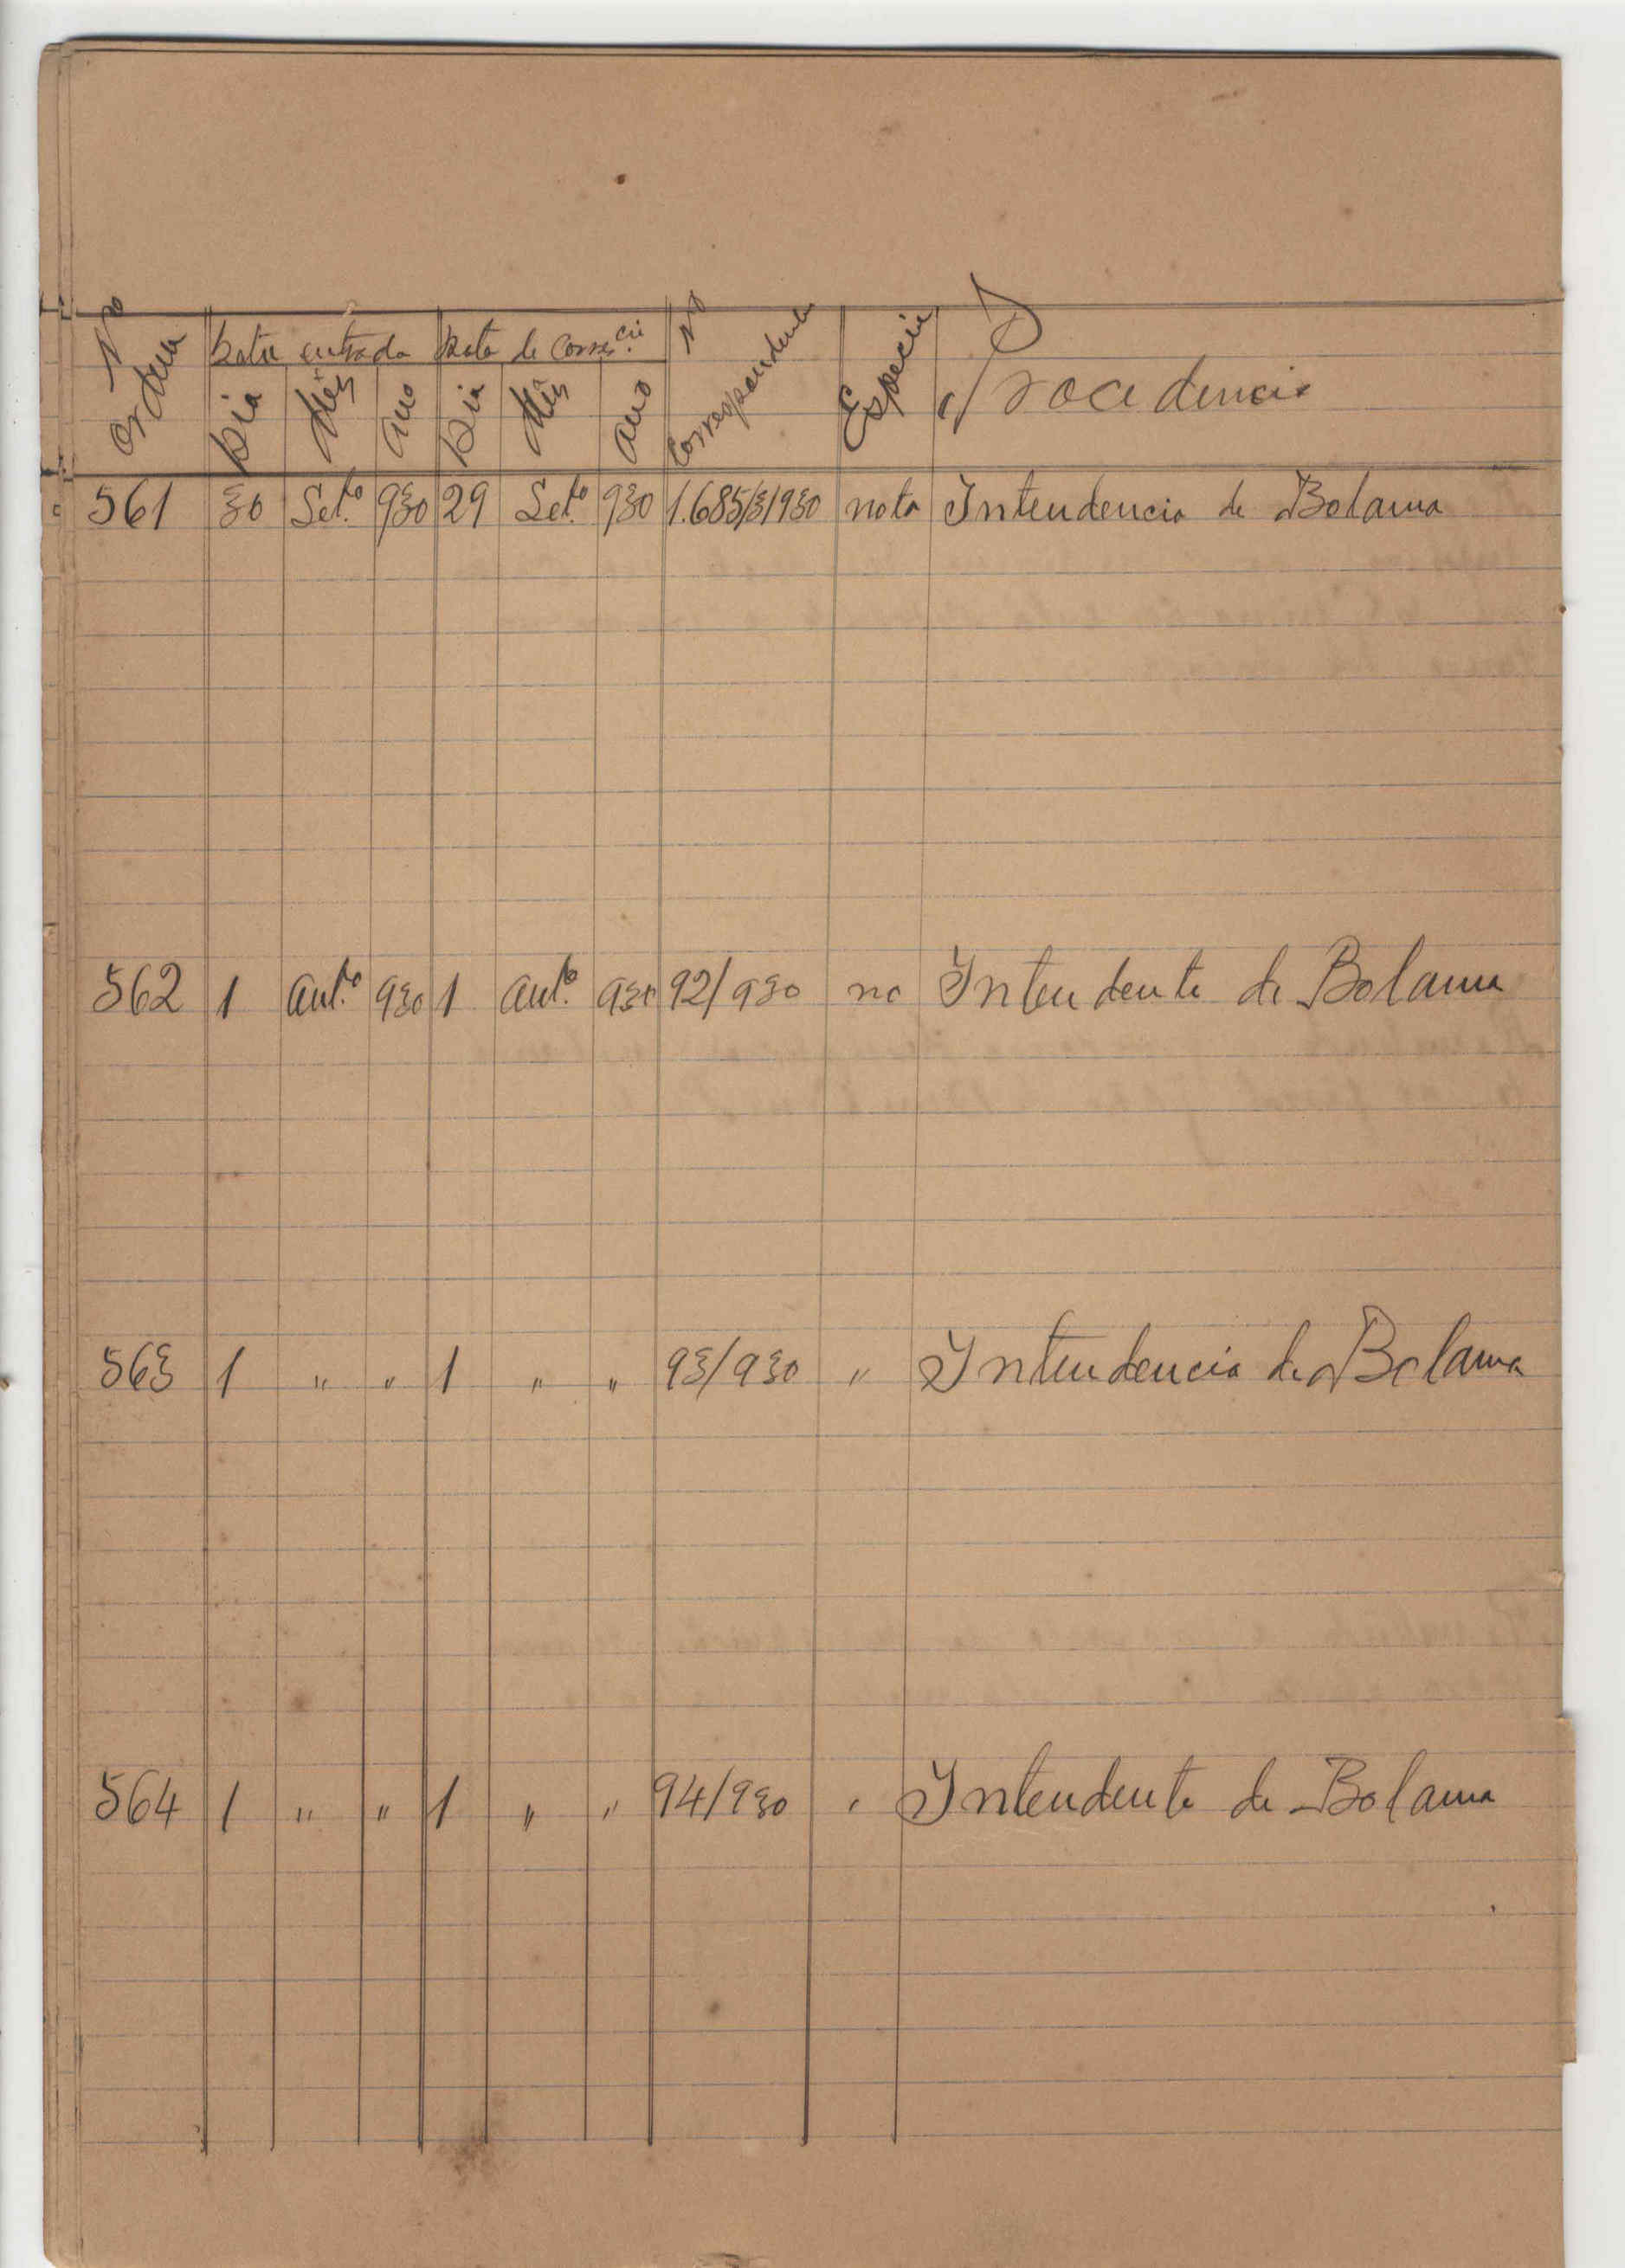 Nº Ordem Data entrada Data de Corres.cia Nº Correspondencia Especie Procedencia
Dia Mês Ano Dia Mês Ano
561 30 Set.º 930 29 Set.º 930 1.685/3/930 nota Intendencia de Bolama
562 1 Out.º 930 1 Out.º 930 92/930 no Intendente de Bolama
563 1 " " 1 " " 93/930 " Intendencia de Bolama
564 1 " " 1 " " 94/930 " Intendente de Bolama